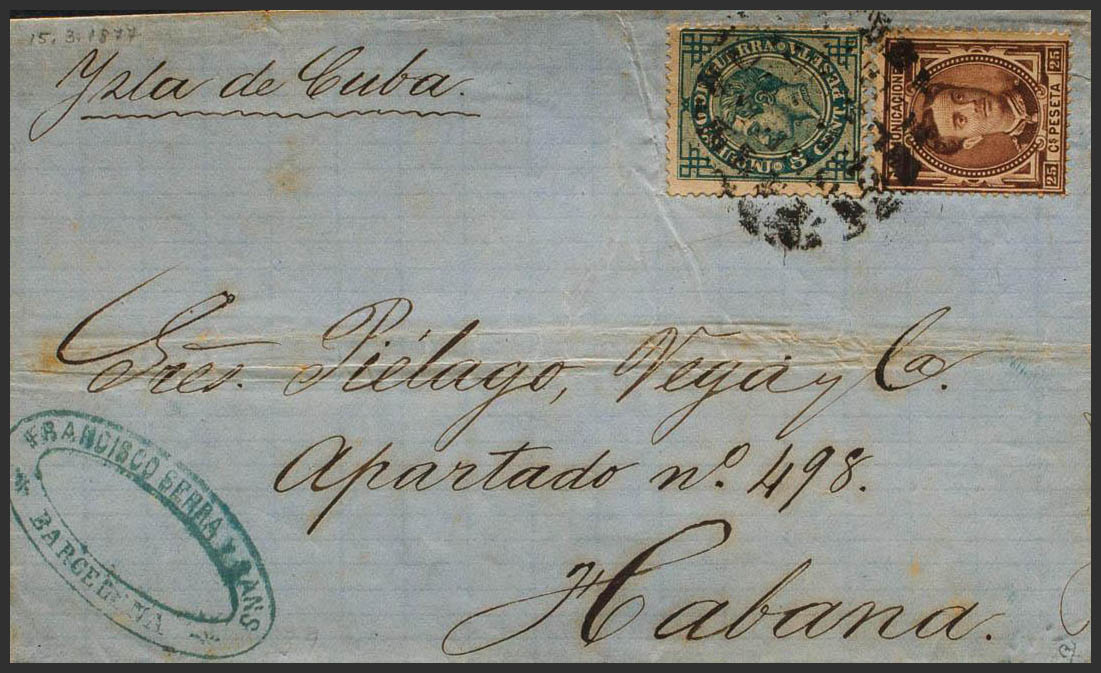 15.3.1877
Ysla de Cuba.
IMPUESTO DE GUERRA
5 CENT. PESETA
COMUNICACIONES
25 Cs PESETA 25
Sres. Piélago, Vega y Ca.
Apartado no. 498.
Habana.
FRANCISCO SERRA Y SANS
BARCELONA